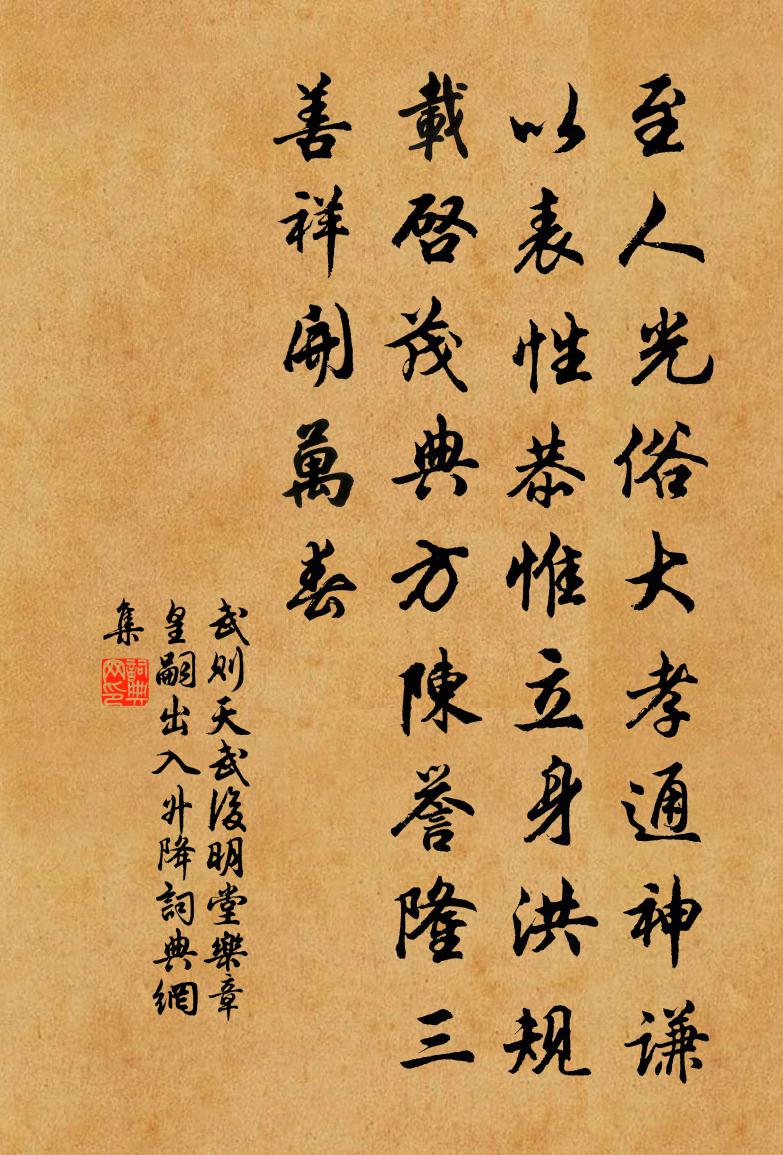 至人光俗大孝通神謙
以表性恭惟立身洪規
載啓茂典方陳譽隆三
善祥開萬春
武則天武後明堂樂章
皇嗣出入升降詞典網
集
詞典网印